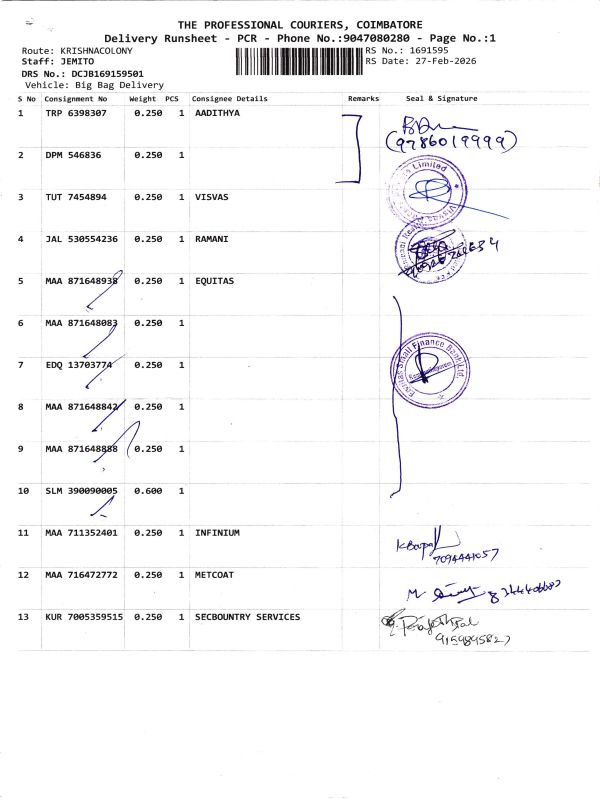 THE PROFESSIONAL COURIERS, COIMBATORE
Delivery Runsheet - PCR - Phone No.:9047080280 - Page No.:1
Route: KRISHNACOLONY RS No.: 1691595
Staff: JEMITO RS Date: 27-Feb-2026
DRS No.: DCJB169159501
Vehicle: Big Bag Delivery
S No Consignment No Weight PCS Consignee Details Remarks Seal & Signature
1 TRP 6398307 0.250 1 AADITHYA
(9786019999)
2 DPM 546836 0.250 1
3 TUT 7454894 0.250 1 VISVAS
4 JAL 530554236 0.250 1 RAMANI
5 MAA 871648938 0.250 1 EQUITAS
6 MAA 871648083 0.250 1
7 EDQ 13703774 0.250 1
Equitas Small Finance Bank Ltd
8 MAA 871648842 0.250 1
9 MAA 871648888 0.250 1
10 SLM 390090005 0.600 1
11 MAA 711352401 0.250 1 INFINIUM
7094441057
12 MAA 716472772 0.250 1 METCOAT
13 KUR 7005359515 0.250 1 SECBOUNTRY SERVICES
9159895827